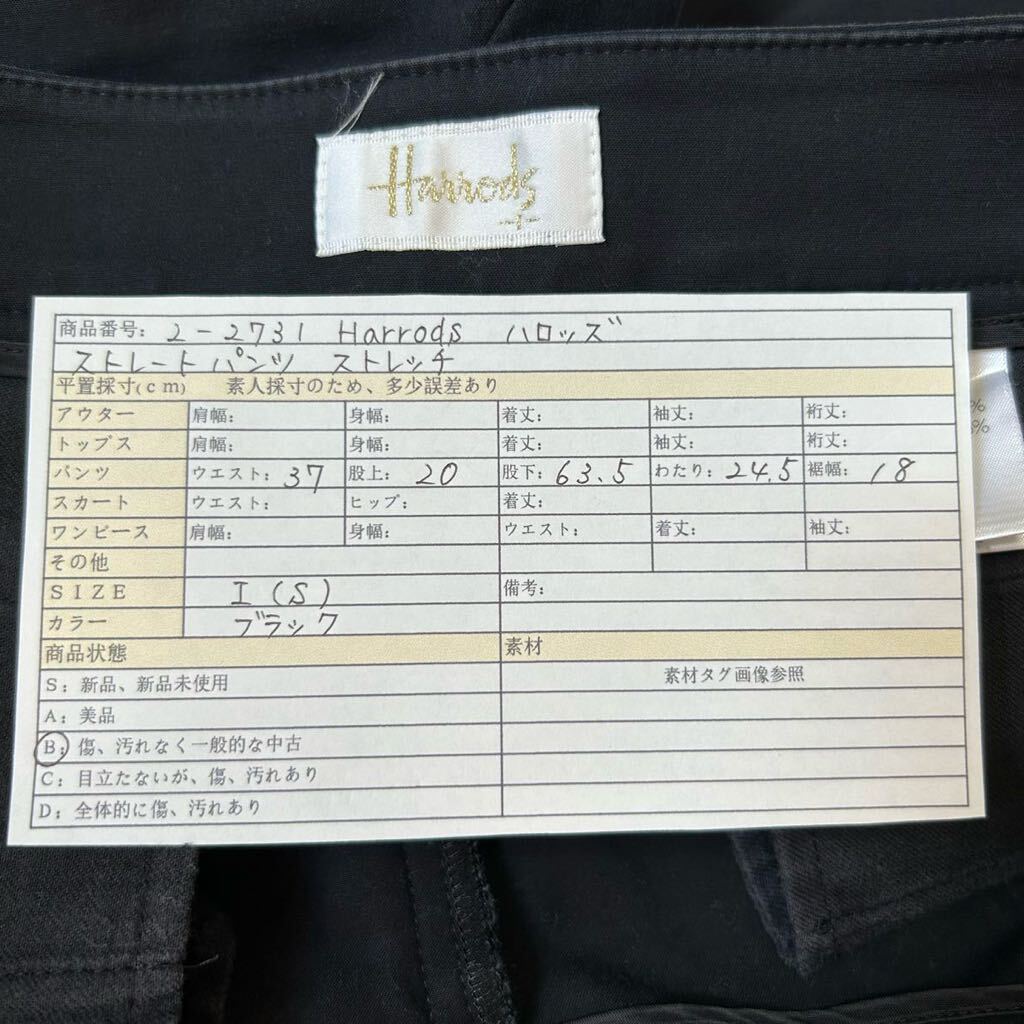 Harrods
商品番号: 2-2731 Harrods ハロッズ
ストレートパンツ ストレッチ
平置採寸(cm) 素人採寸のため、多少誤差あり
アウター 肩幅: 身幅: 着丈: 袖丈: 裄丈:
トップス 肩幅: 身幅: 着丈: 袖丈: 裄丈:
パンツ ウエスト: 37 股上: 20 股下: 63.5 わたり: 24.5 裾幅: 18
スカート ウエスト: ヒップ: 着丈:
ワンピース 肩幅: 身幅: ウエスト: 着丈: 袖丈:
その他
SIZE I (S) 備考:
カラー ブラック
商品状態 素材
S: 新品、新品未使用 素材タグ画像参照
A: 美品
B: 傷、汚れなく一般的な中古
C: 目立たないが、傷、汚れあり
D: 全体的に傷、汚れあり